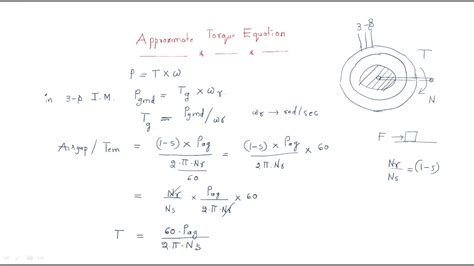 Approximate Torque Equation
3-ϕ
P = T × ω
T
in 3-ϕ I.M. Pgmd = Tg × ωr.
Tg = Pgmd/ωr ωr → rad/sec
N.
F →
Airgap / Tem = (1-s) Pag / (2·π·Nr / 60) = (1-s) × Pag / 2·π·Nr × 60
Nr/Ns = (1-s)
= Nr/Ns × Pag / 2·π·Nr × 60
T = 60·Pag / 2·π·Ns